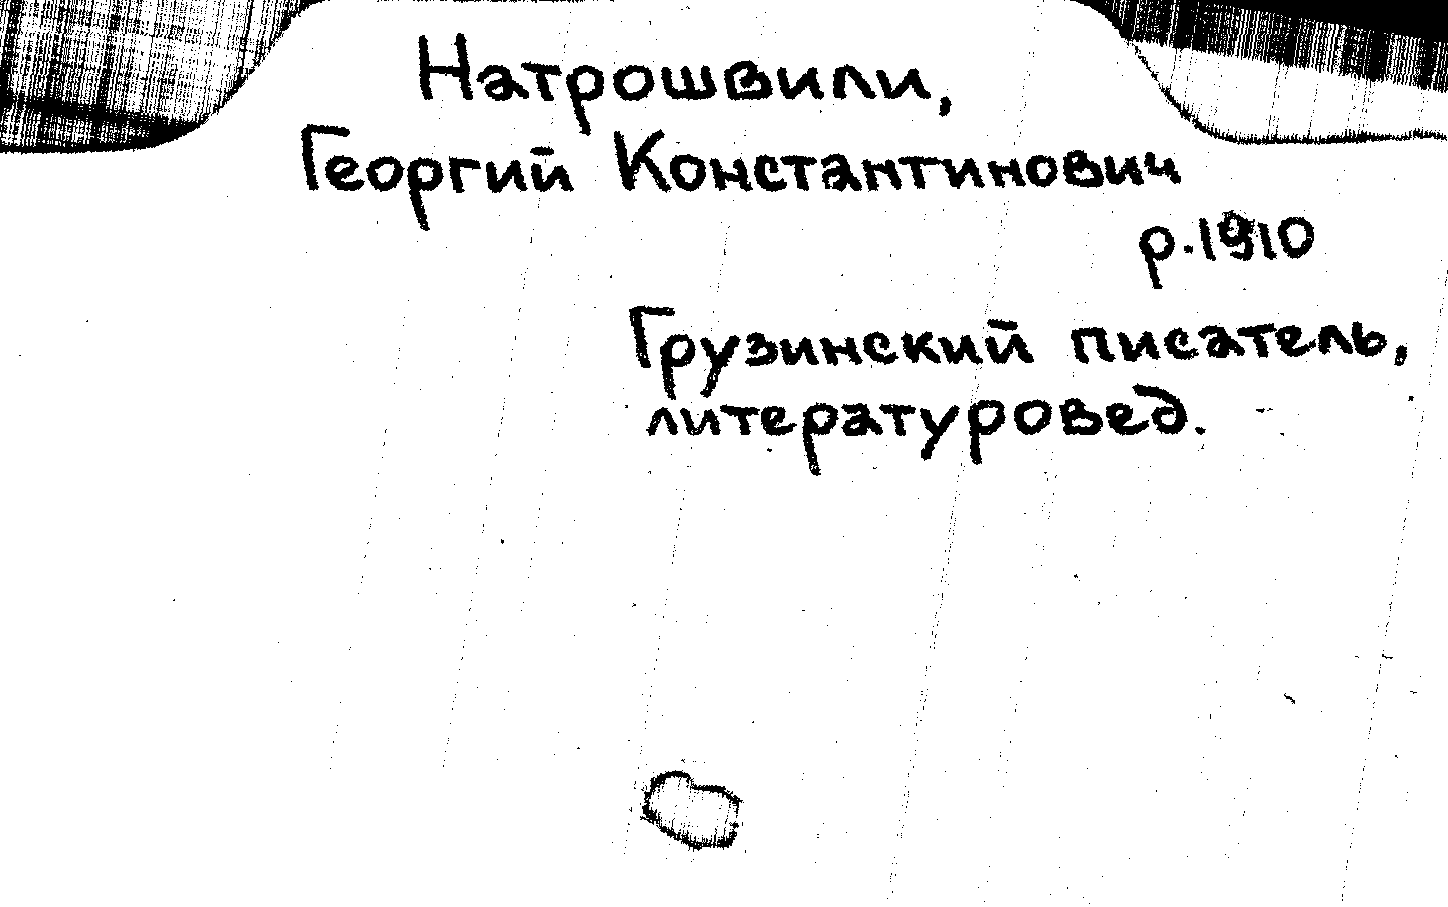 Натрошвили,
Георгий Константинович
р.1910
Грузинский писатель,
литературовед.